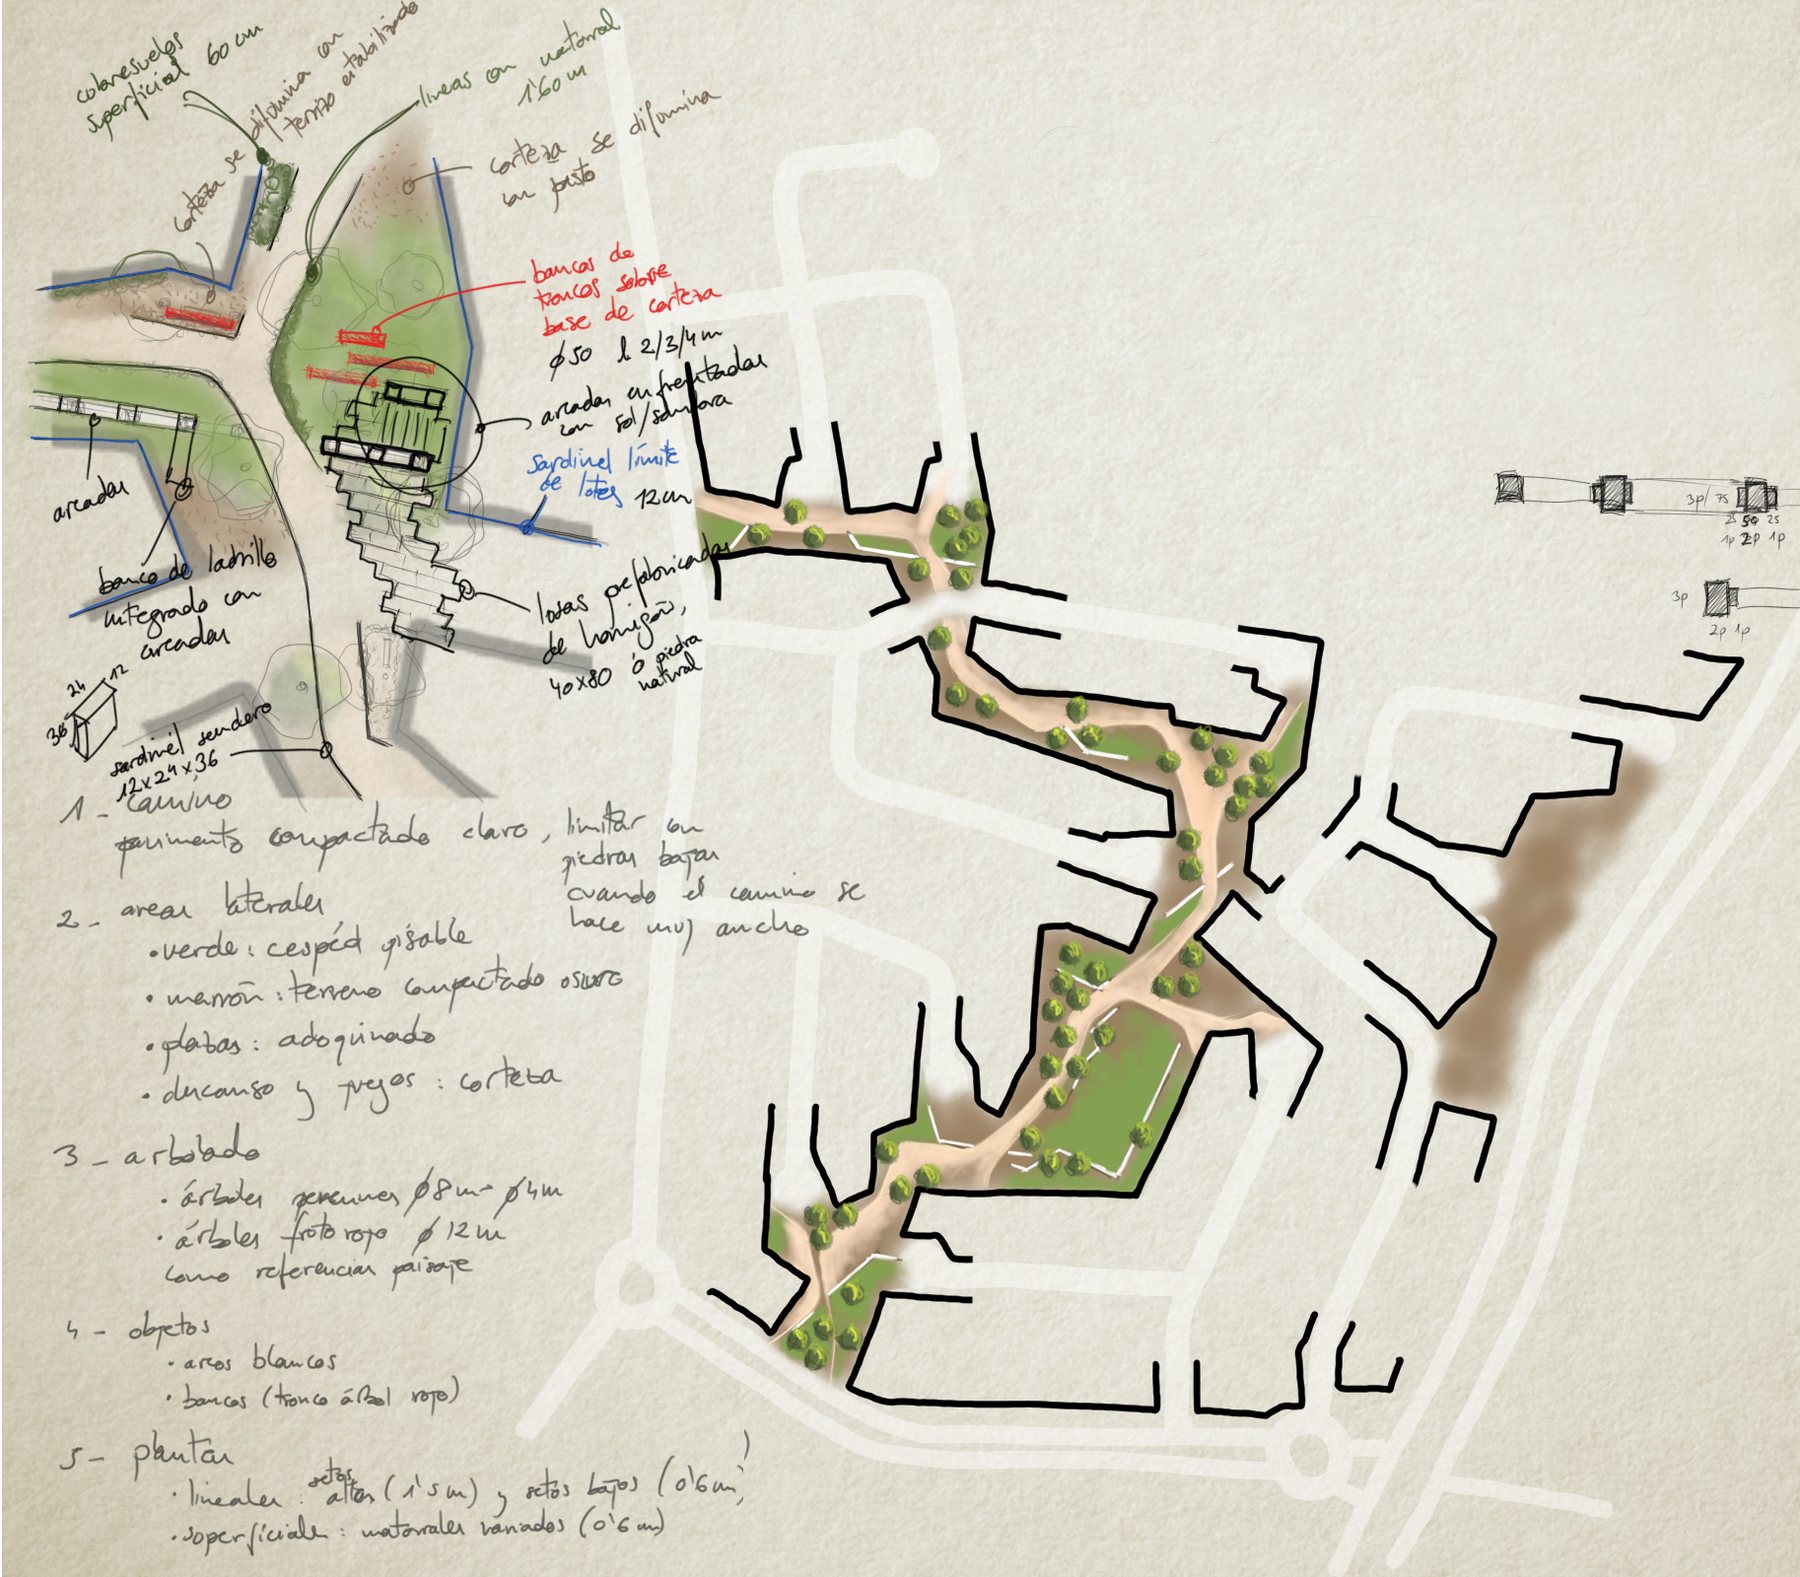 cubresuelos
superficial 60 cm
corteza se difumina con
terrizo estabilizado
lineas con matorral
1'60 m
corteza se difumina
con pasto
bancos de
troncos sobre
base de corteza
ø50 l 2/3/4 m
arcadas enfrentadas
con sol/sombra
sardinel límite
de lotes 12 cm
arcadas
banco de ladrillo
integrado con
arcadas
losas prefabricadas
de hormigón,
40x80 ó piedra
natural
24 12
36
sardinel sendero
12x24x36
3p/75
25 50 25
1p 2p 1p
3p
2p 1p
1 - camino
pavimento compactado claro, limitar con
piedras bajas
cuando el camino se
hace muy ancho
2 - areas laterales
• verde: cespéd pisable
• marrón: terreno compactado oscuro
• plazas: adoquinado
• descanso y juegos: corteza
3 - arbolado
• árboles perennes ø8m - ø4m
• árboles froto rojo ø12m
como referencias paisaje
4 - objetos
• arcos blancos
• bancos (tronco árbol rojo)
5 - plantas
• lineales: setos altos (1'5m) y setos bajos (0'6m)
• soperficiales: matorrales variados (0'6m)